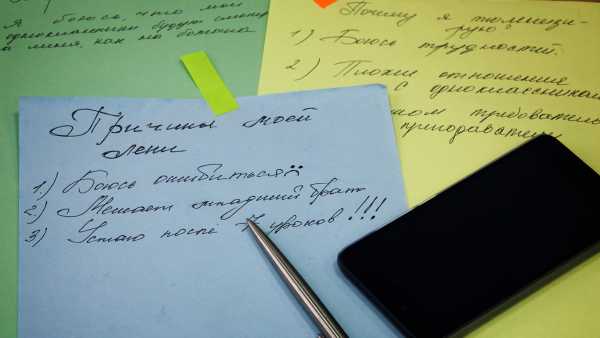 Я боюсь, что мои
одноклассники будут смотр
а меня, как на ботана
Почему я тюленизи-
рую?
1) Боюсь трудностей.
2) Плохие отношения
с одноклассником
требователь
преподаватели
Причины моей
лени
1) Боюсь ошибиться
2) Мешает младший брат
3) Устаю после 7 уроков!!!